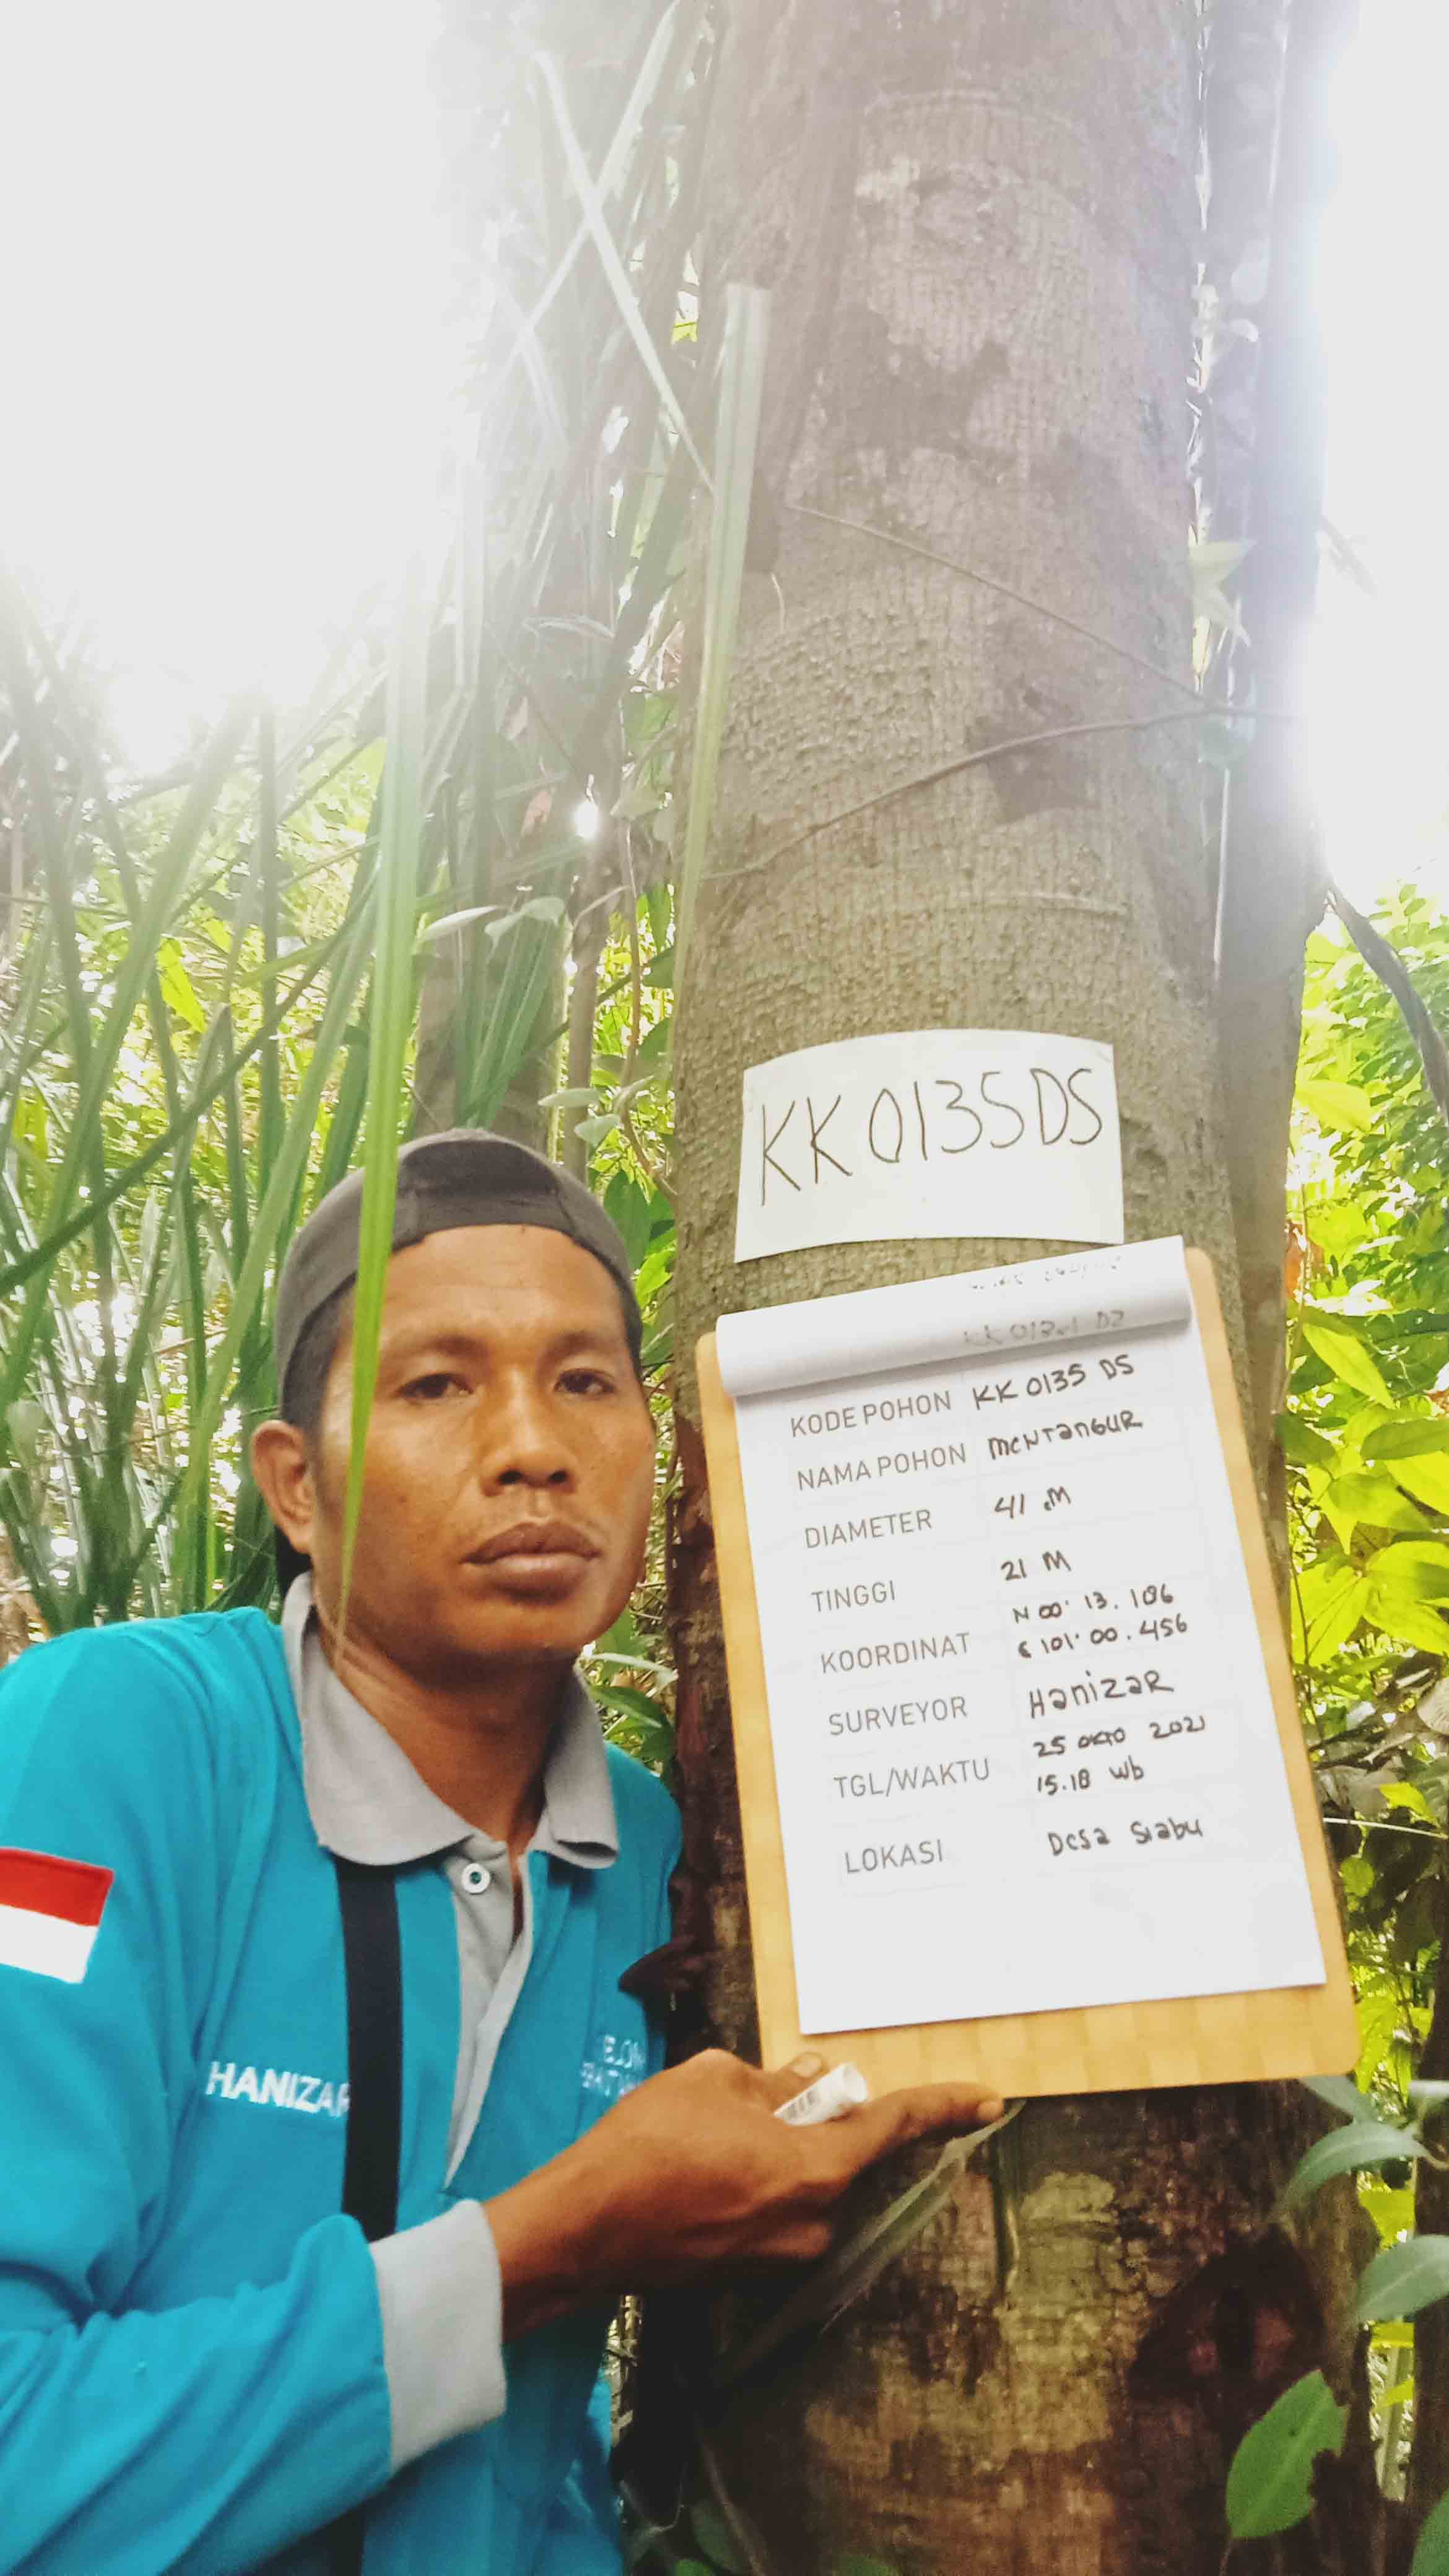 KK0135DS
KODE POHON KK 0135 DS
NAMA POHON MeNTanGUR
DIAMETER 41 .M
TINGGI 21 M
KOORDINAT N 00° 13. 106
E 101° 00. 456
SURVEYOR HanizaR
TGL/WAKTU 25 okto 2021
15.18 wb
LOKASI Desa Siabu
HANIZAR